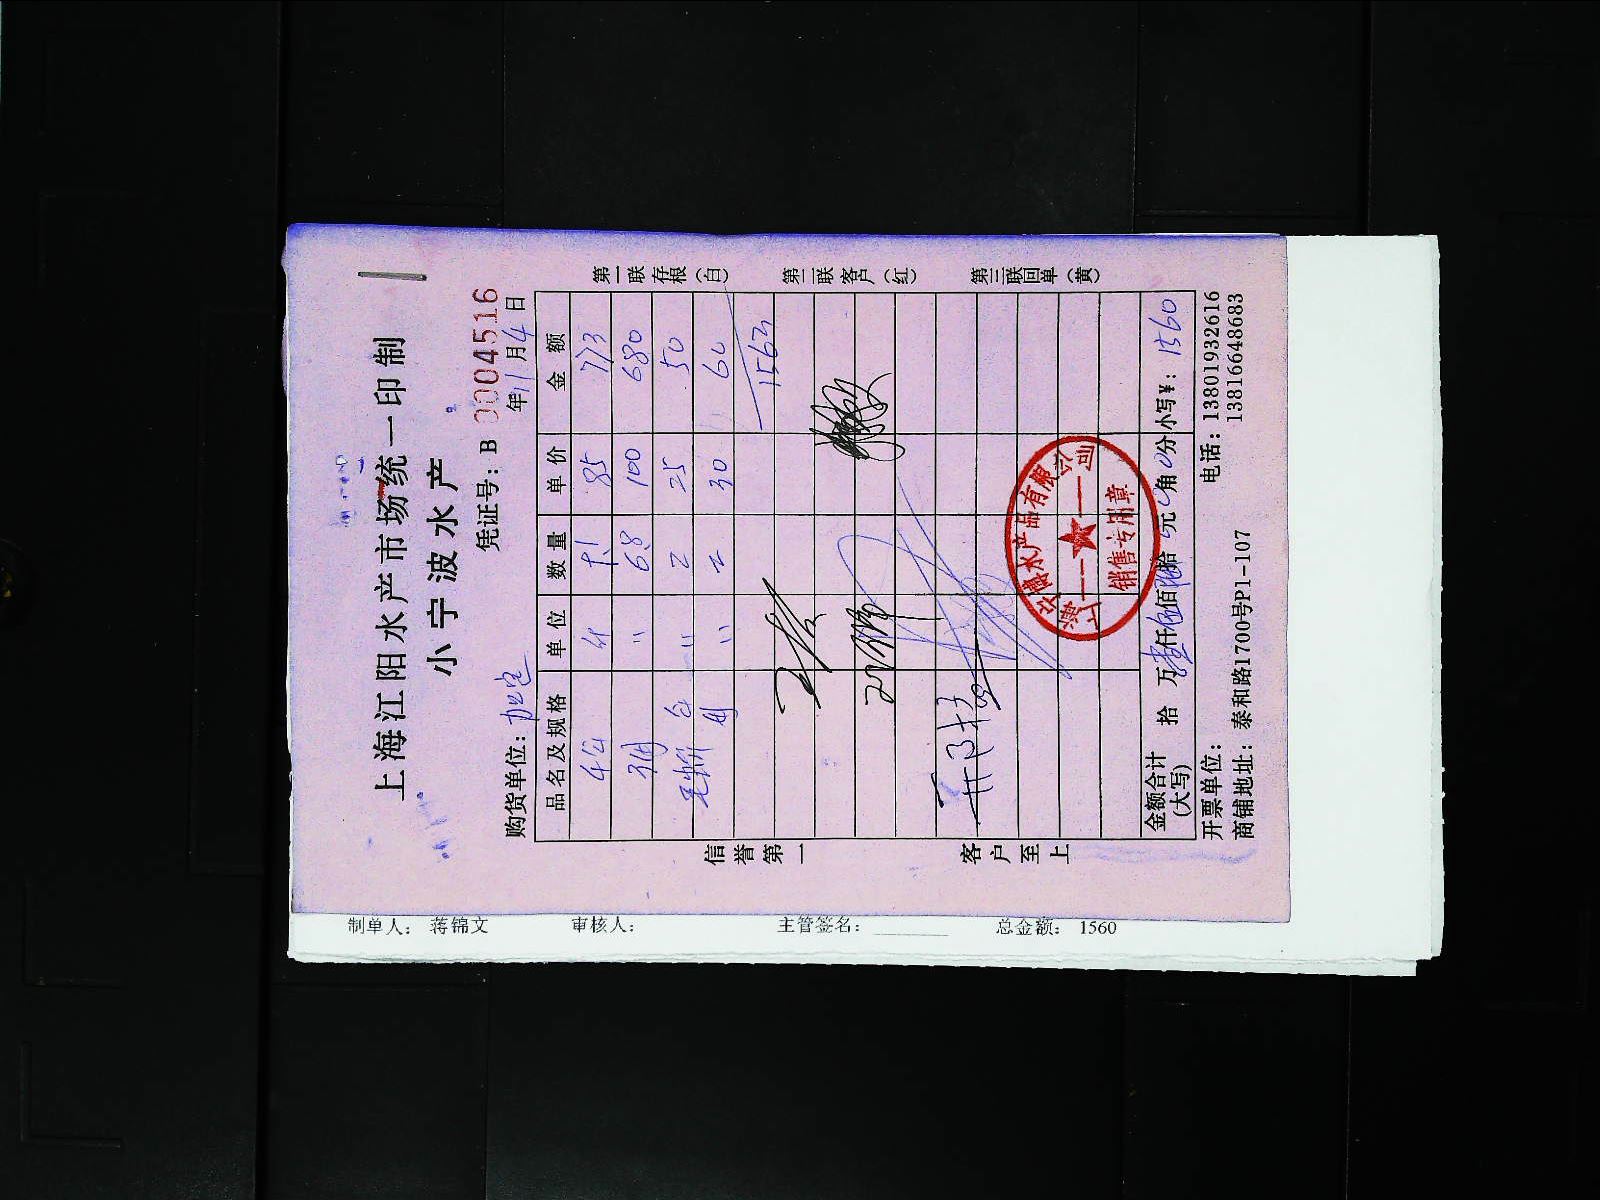 上海江阳水产市场统一印制
小宁波水产
凭证号：B 0004516
购货单位： 年11月4日
品名及规格 单位 数量 单价 金额
斤 9.1 85 773
〃 6.8 100 680
〃 2 25 50
〃 2 30 60
1563
金额合计（大写） 拾 万壹仟伍佰陆拾 元 角 0分 小写¥：1560
开票单位： 电话：13801932616
商铺地址：泰和路1700号P1-107 13816648683
信誉第一
客户至上
第一联存根（白）
第二联客户（红）
第三联回单（黄）
水产品有限公司
销售专用章
制单人： 蒋锦文 审核人： 主管签名： 总金额： 1560